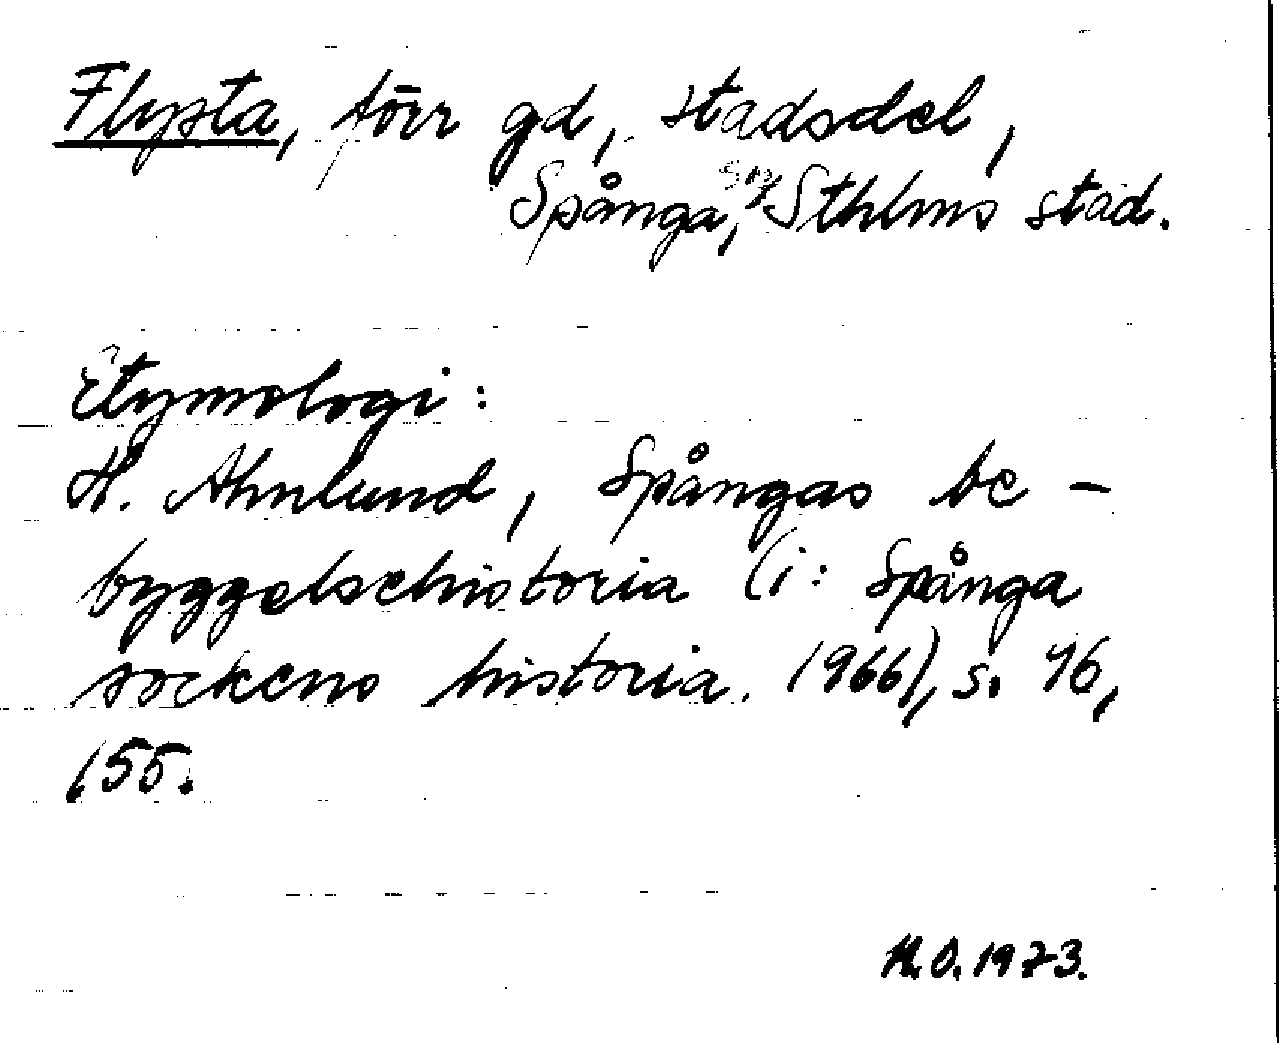 Flysta, förr gd, stadsdel,
Spånga, sn, Sthlms stad.
Etymologi:
H. Ahnlund, Spångas be-
byggelsehistoria (i: Spånga
sockens historia. 1966), s. 46,
155.
M.O. 1973.